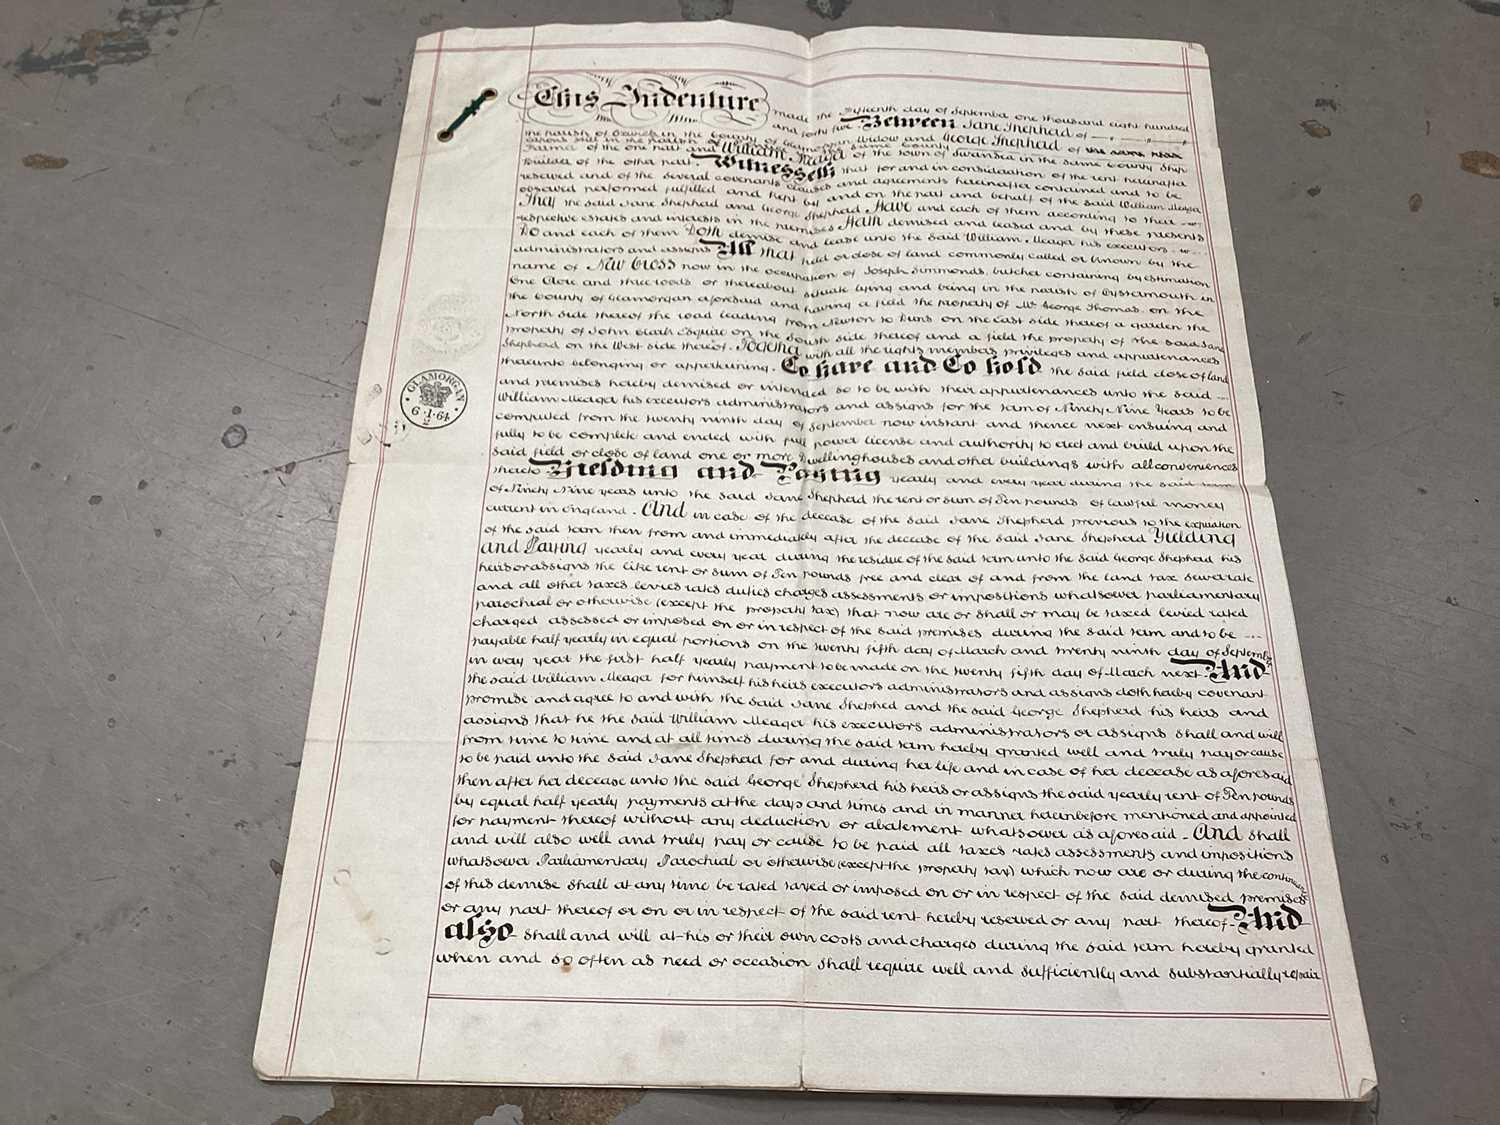 This Indenture made the day of September one thousand eight hundred
and forty five Between Jane Shepherd of
the parish of in the County of Glamorgan Widow and George Shepherd of the same
in the parish of same County
Farmer of the one part and William Meager of the town of Swansea in the same County Ship
builder of the other part. Witnesseth that for and in consideration of the rent hereinafter
reserved and of the several covenants clauses and agreements hereinafter contained and to be
observed performed fulfilled and kept by and on the part and behalf of the said William Meager
That the said Jane Shepherd and George Shepherd Have and each of them according to their
respective estates and interests in the premises Hath demised and leased and by these presents
Do and each of them Doth demise and lease unto the said William Meager his executors
administrators and assigns All that field or close of land commonly called or known by the
name of New Cross now in the occupation of Joseph Simmonds, butcher containing by estimation
One Acre and three roods or thereabouts situate lying and being in the parish of Oystermouth in
the County of Glamorgan aforesaid and having a field the property of Mr George Thomas on the
North side thereof the road leading from Newton to on the East side thereof a garden the
property of John Esquire on the South side thereof and a field the property of the said Jane
Shepherd on the West side thereof. Together with all the rights members privileges and appurtenances
thereunto belonging or appertaining. To have and To hold the said field close of land
and premises hereby demised or intended so to be with their appurtenances unto the said
William Meager his executors administrators and assigns for the term of Ninety Nine Years to be
computed from the twenty ninth day of September now instant and thence next ensuing and
fully to be complete and ended with full power license and authority to erect and build upon the
said field or close of land one or more dwellinghouses and other buildings with all conveniences
thereto Yielding and Paying yearly and every year during the said term
of Ninety Nine years unto the said Jane Shepherd the rent or sum of Ten pounds of lawful money
current in England. And in case of the decease of the said Jane Shepherd previous to the expiration
of the said term then from and immediately after the decease of the said Jane Shepherd Yielding
and Paying yearly and every year during the residue of the said term unto the said George Shepherd his
heirs or assigns the like rent or sum of Ten pounds free and clear of and from the land tax sewerate
and all other taxes levies rates duties charges assessments or impositions whatsoever parliamentary
parochial or otherwise (except the property tax) that now are or shall or may be taxed levied rated
charged assessed or imposed on or in respect of the said premises during the said term and to be
payable half yearly in equal portions on the twenty fifth day of March and twenty ninth day of September
in every year the first half yearly payment to be made on the twenty fifth day of March next And
the said William Meager for himself his heirs executors administrators and assigns doth hereby covenant
promise and agree to and with the said Jane Shepherd and the said George Shepherd his heirs and
assigns that he the said William Meager his executors administrators or assigns shall and will
from time to time and at all times during the said term hereby granted well and truly pay or cause
to be paid unto the said Jane Shepherd for and during her life and in case of her decease as aforesaid
then after her decease unto the said George Shepherd his heirs or assigns the said yearly rent of Ten pounds
by equal half yearly payments at the days and times and in manner hereinbefore mentioned and appointed
for payment thereof without any deduction or abatement whatsoever as aforesaid - And shall
and will also well and truly pay or cause to be paid all taxes rates assessments and impositions
whatsoever Parliamentary Parochial or otherwise (except the property tax) which now are or during the continuance
of this demise shall at any time be rated taxed or imposed on or in respect of the said demised premises
or any part thereof or on or in respect of the said rent hereby reserved or any part thereof - And
also shall and will at his or their own costs and charges during the said term hereby granted
when and so often as need or occasion shall require well and sufficiently and substantially repair
GLAMORGAN
6·1·64